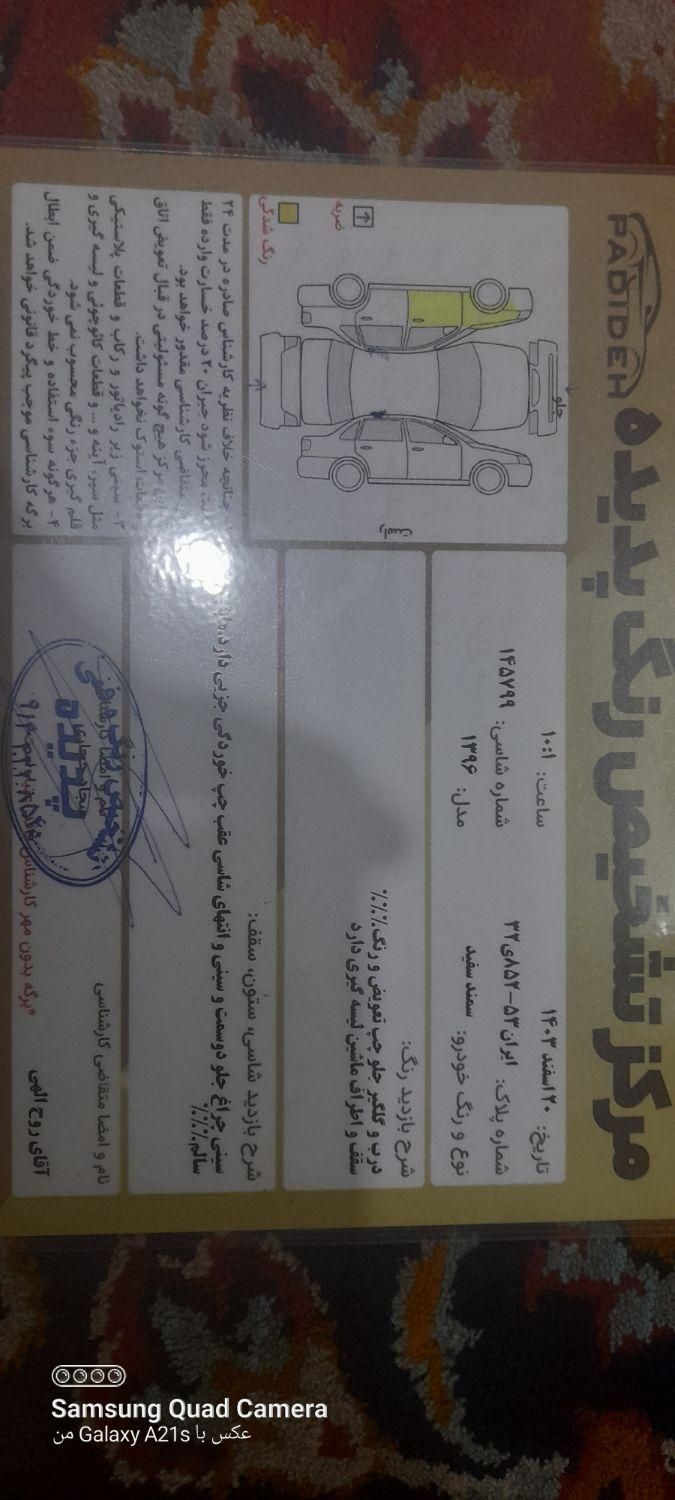 مرکز تشخیص رنگ پدیده
PADIDEH
تاریخ: ۲۰ اسفند ۱۴۰۳
ساعت: ۱۰:۱
شماره پلاک: ایران۵۳-۸۵۲ی۳۲
شماره شاسی: ۱۴۵۷۹۹
نوع و رنگ خودرو: سمند سفید
مدل: ۱۳۹۶
شرح بازدید رنگ:
درب و گلگیر جلو چپ تعویض و رنگ.٪٪٪
سقف و اطراف ماشین لیسه گیری دارد
شرح بازدید شاسی، ستون، سقف:
سینی چراغ جلو دوسمت و سینی و انتهای شاسی عقب چپ خوردگی جزیی دارد
سالم.٪٪٪
نام و امضا متقاضی کارشناسی
آقای روح الهی
نام و امضا کارشناس
پدیده
*برگه بدون مهر کارشناس
جلو
ضربه
رنگ شدگی
چنانچه خلاف نظریه کارشناس صادره در مدت ۲۴
محرز شود جبران ۲۰ درصد خسارت وارده فقط
متقاضی کارشناسی مقدور خواهد بود.
مرکز هیچ گونه مسئولیتی در قبال تعویض اتاق
استوک نخواهد داشت.
۳- سینی زیر رادیاتور و رکاب و قطعات پلاستیکی
مثل سپر آینه و ... و قطعات کائوچوئی و لیسه گیری و
قلم گیری جزء رنگی محسوب نمی شود.
۴- هرگونه سوء استفاده و خط خوردگی ضمن ابطال
برگه کارشناسی موجب پیگرد قانونی خواهد شد.
Samsung Quad Camera
عکس با Galaxy A21s من